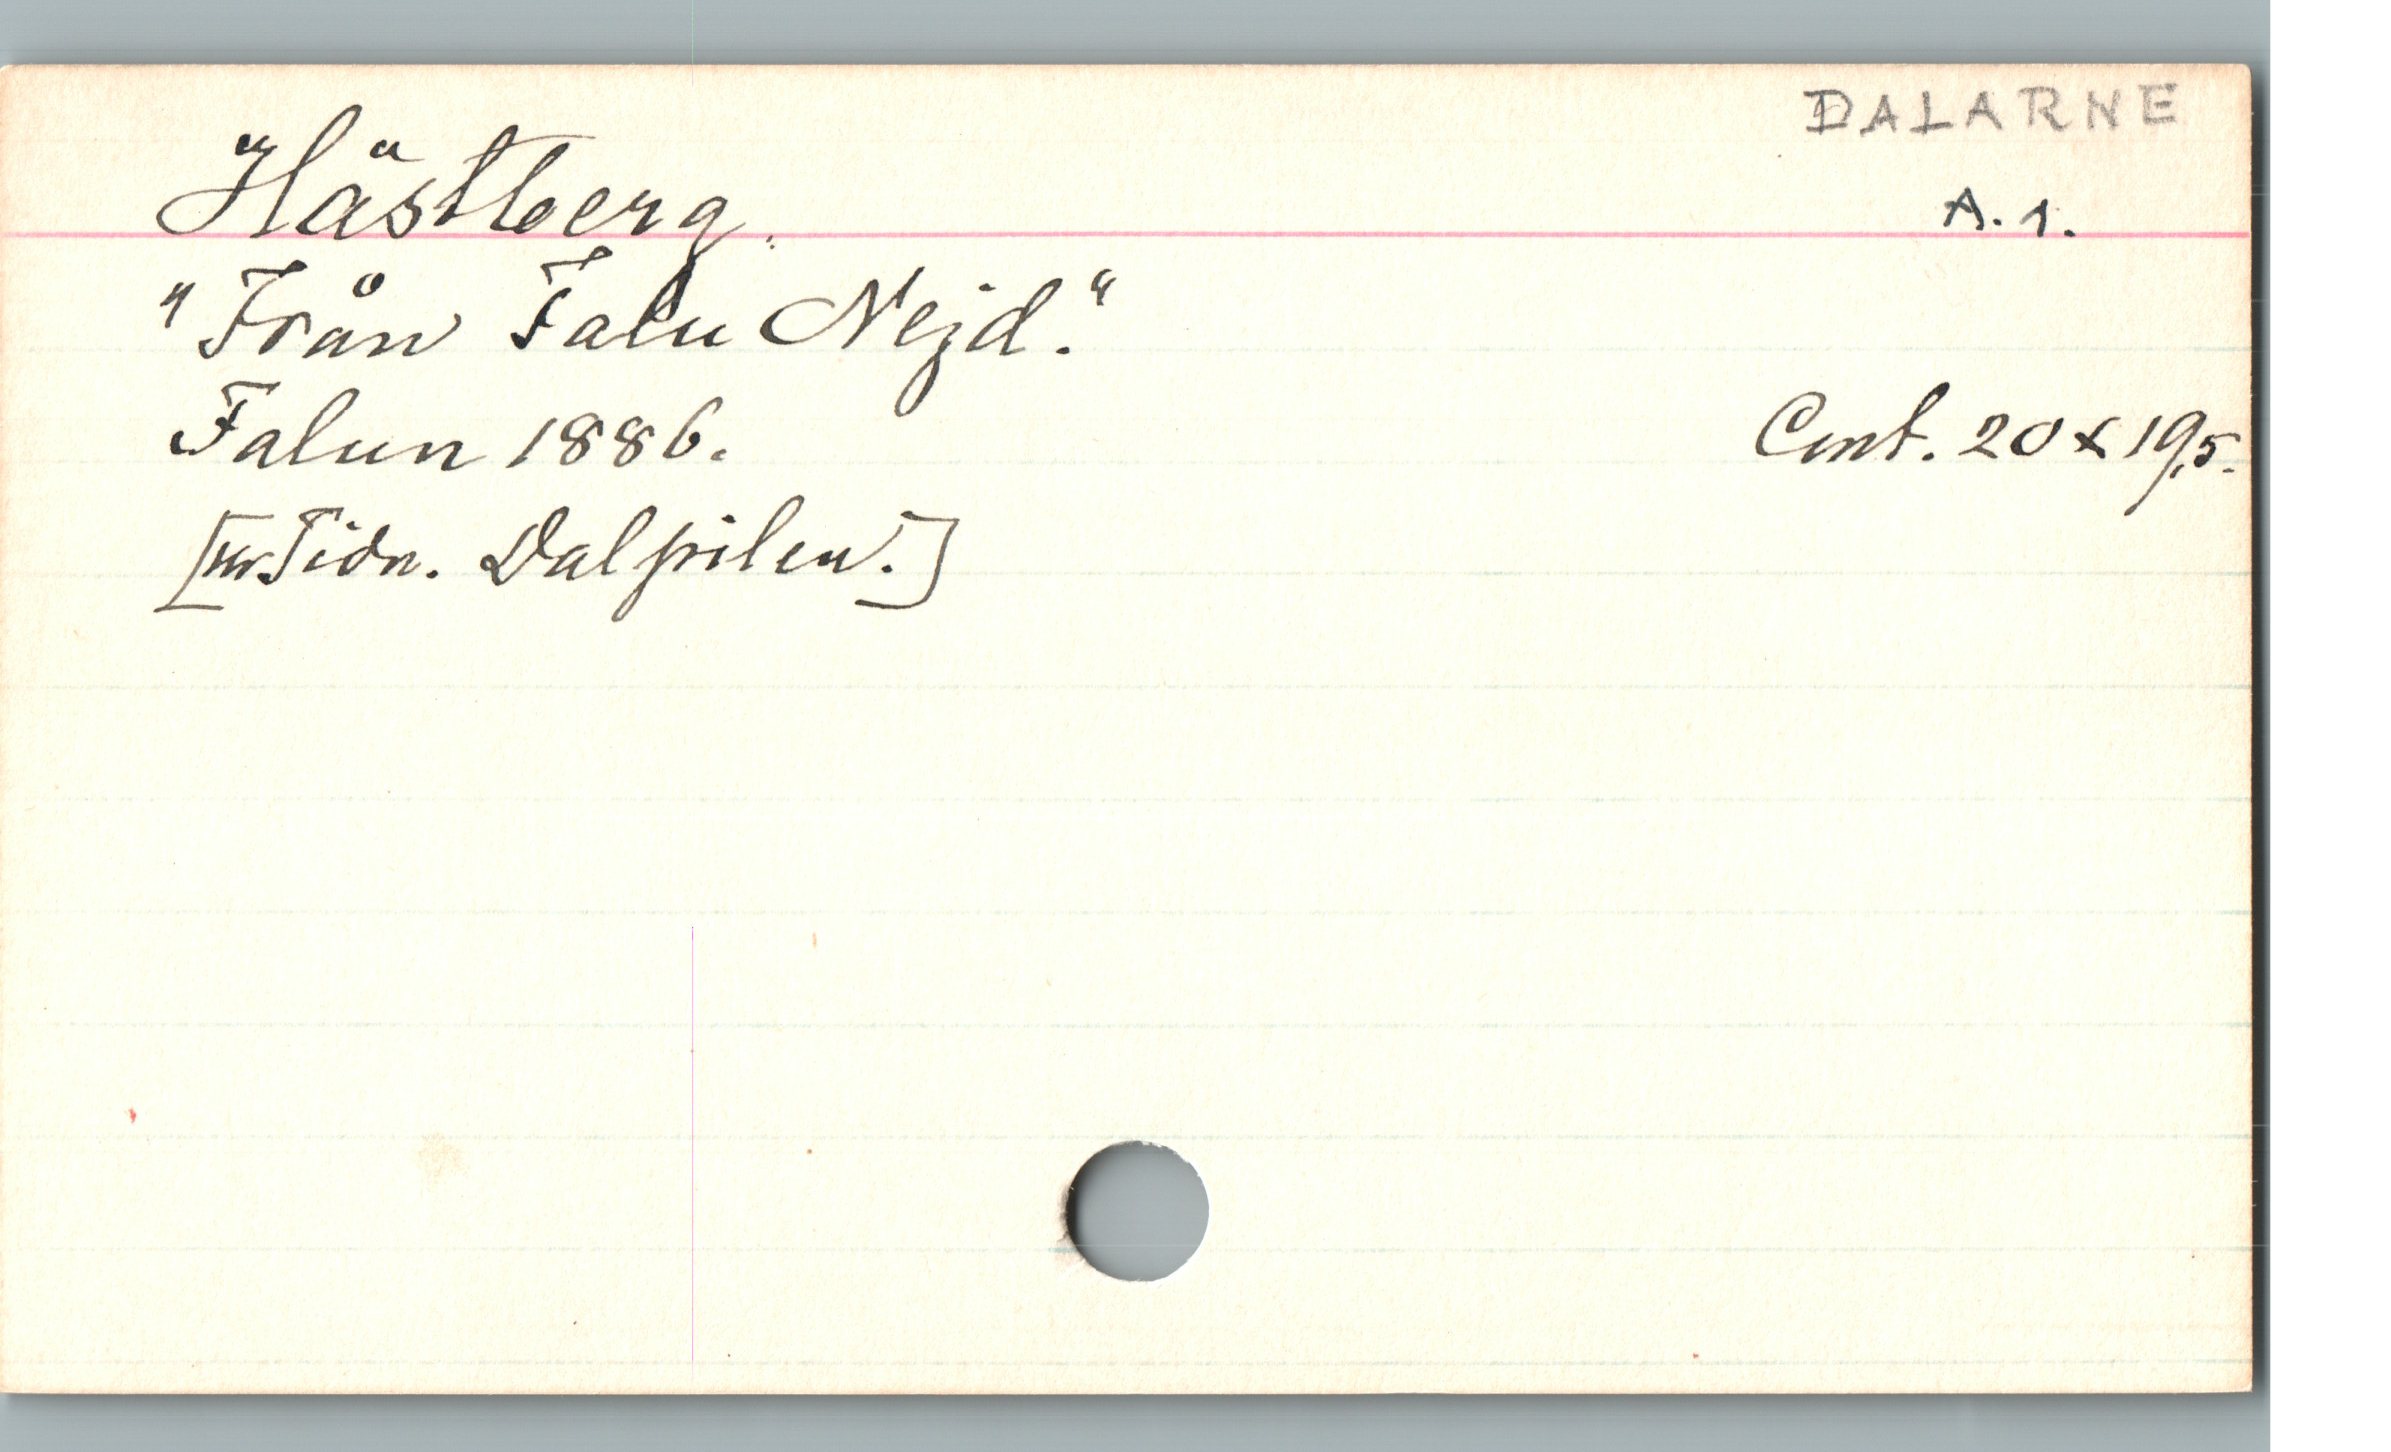 DALARNE
Hästberg.
A. 1.
"Från Falu Nejd."
Falun 1886.
Cent. 20 x 19,5.
[ur Tidn. Dalpilen.]